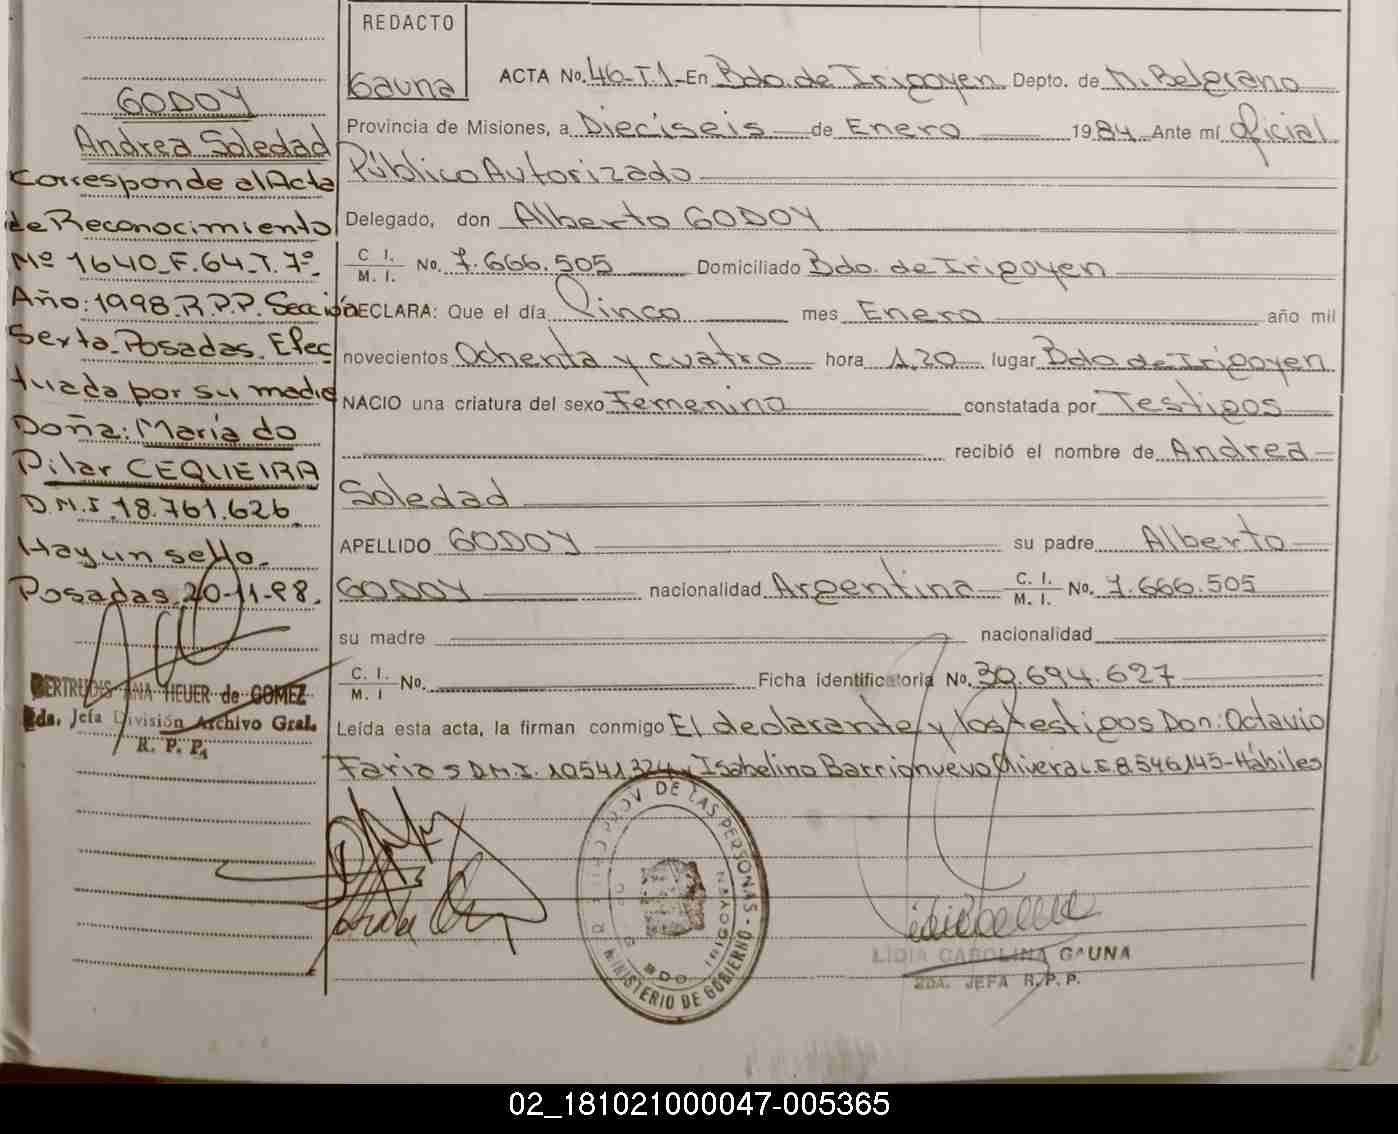 GODOY
Andrea Soledad
Corresponde al Acta
de Reconocimiento
Nº 1640_F.64_T.7º_
Año: 1998_R.P.P. Sección
Sexta_Posadas_Efec
tuada por su madre
Doña: María do
Pilar CEQUEIRA
D.N.I. 18.761.626_
Hay un sello_
Posadas, 20-11-98.
GERTRUDIS ANA HEUER de GOMEZ
2da. Jefa División Archivo Gral.
R. P. P.
REDACTO
Gauna
ACTA No. 46-T.1-En Bdo. de Irigoyen Depto. de M. Belgrano
Provincia de Misiones, a Dieciseis de Enero 1984 Ante mí Oficial
Público Autorizado
Delegado, don Alberto GODOY
C. I.
M. I. No. 7.666.505 Domiciliado Bdo. de Irigoyen
DECLARA: Que el día Cinco mes Enero año mil
novecientos Ochenta y cuatro hora 1,20 lugar Bdo. de Irigoyen
NACIO una criatura del sexo Femenino constatada por Testigos
recibió el nombre de Andrea
Soledad
APELLIDO GODOY su padre Alberto
GODOY nacionalidad Argentina C. I.
M. I. No. 7.666.505
su madre nacionalidad
C. I.
M. I No. Ficha identificatoria No. 30.694.627
Leída esta acta, la firman conmigo El declarante y los testigos Don: Octavio
Farias D.N.I. 10541324 y Isabelino Barrionuevo Olivera L.E. 8546145-Hábiles
PROV. DE LAS PERSONAS - MINISTERIO DE GOBIERNO -
BDO IRIGOYEN
LIDIA CAROLINA GAUNA
2DA. JEFA R.P.P.
02_181021000047-005365